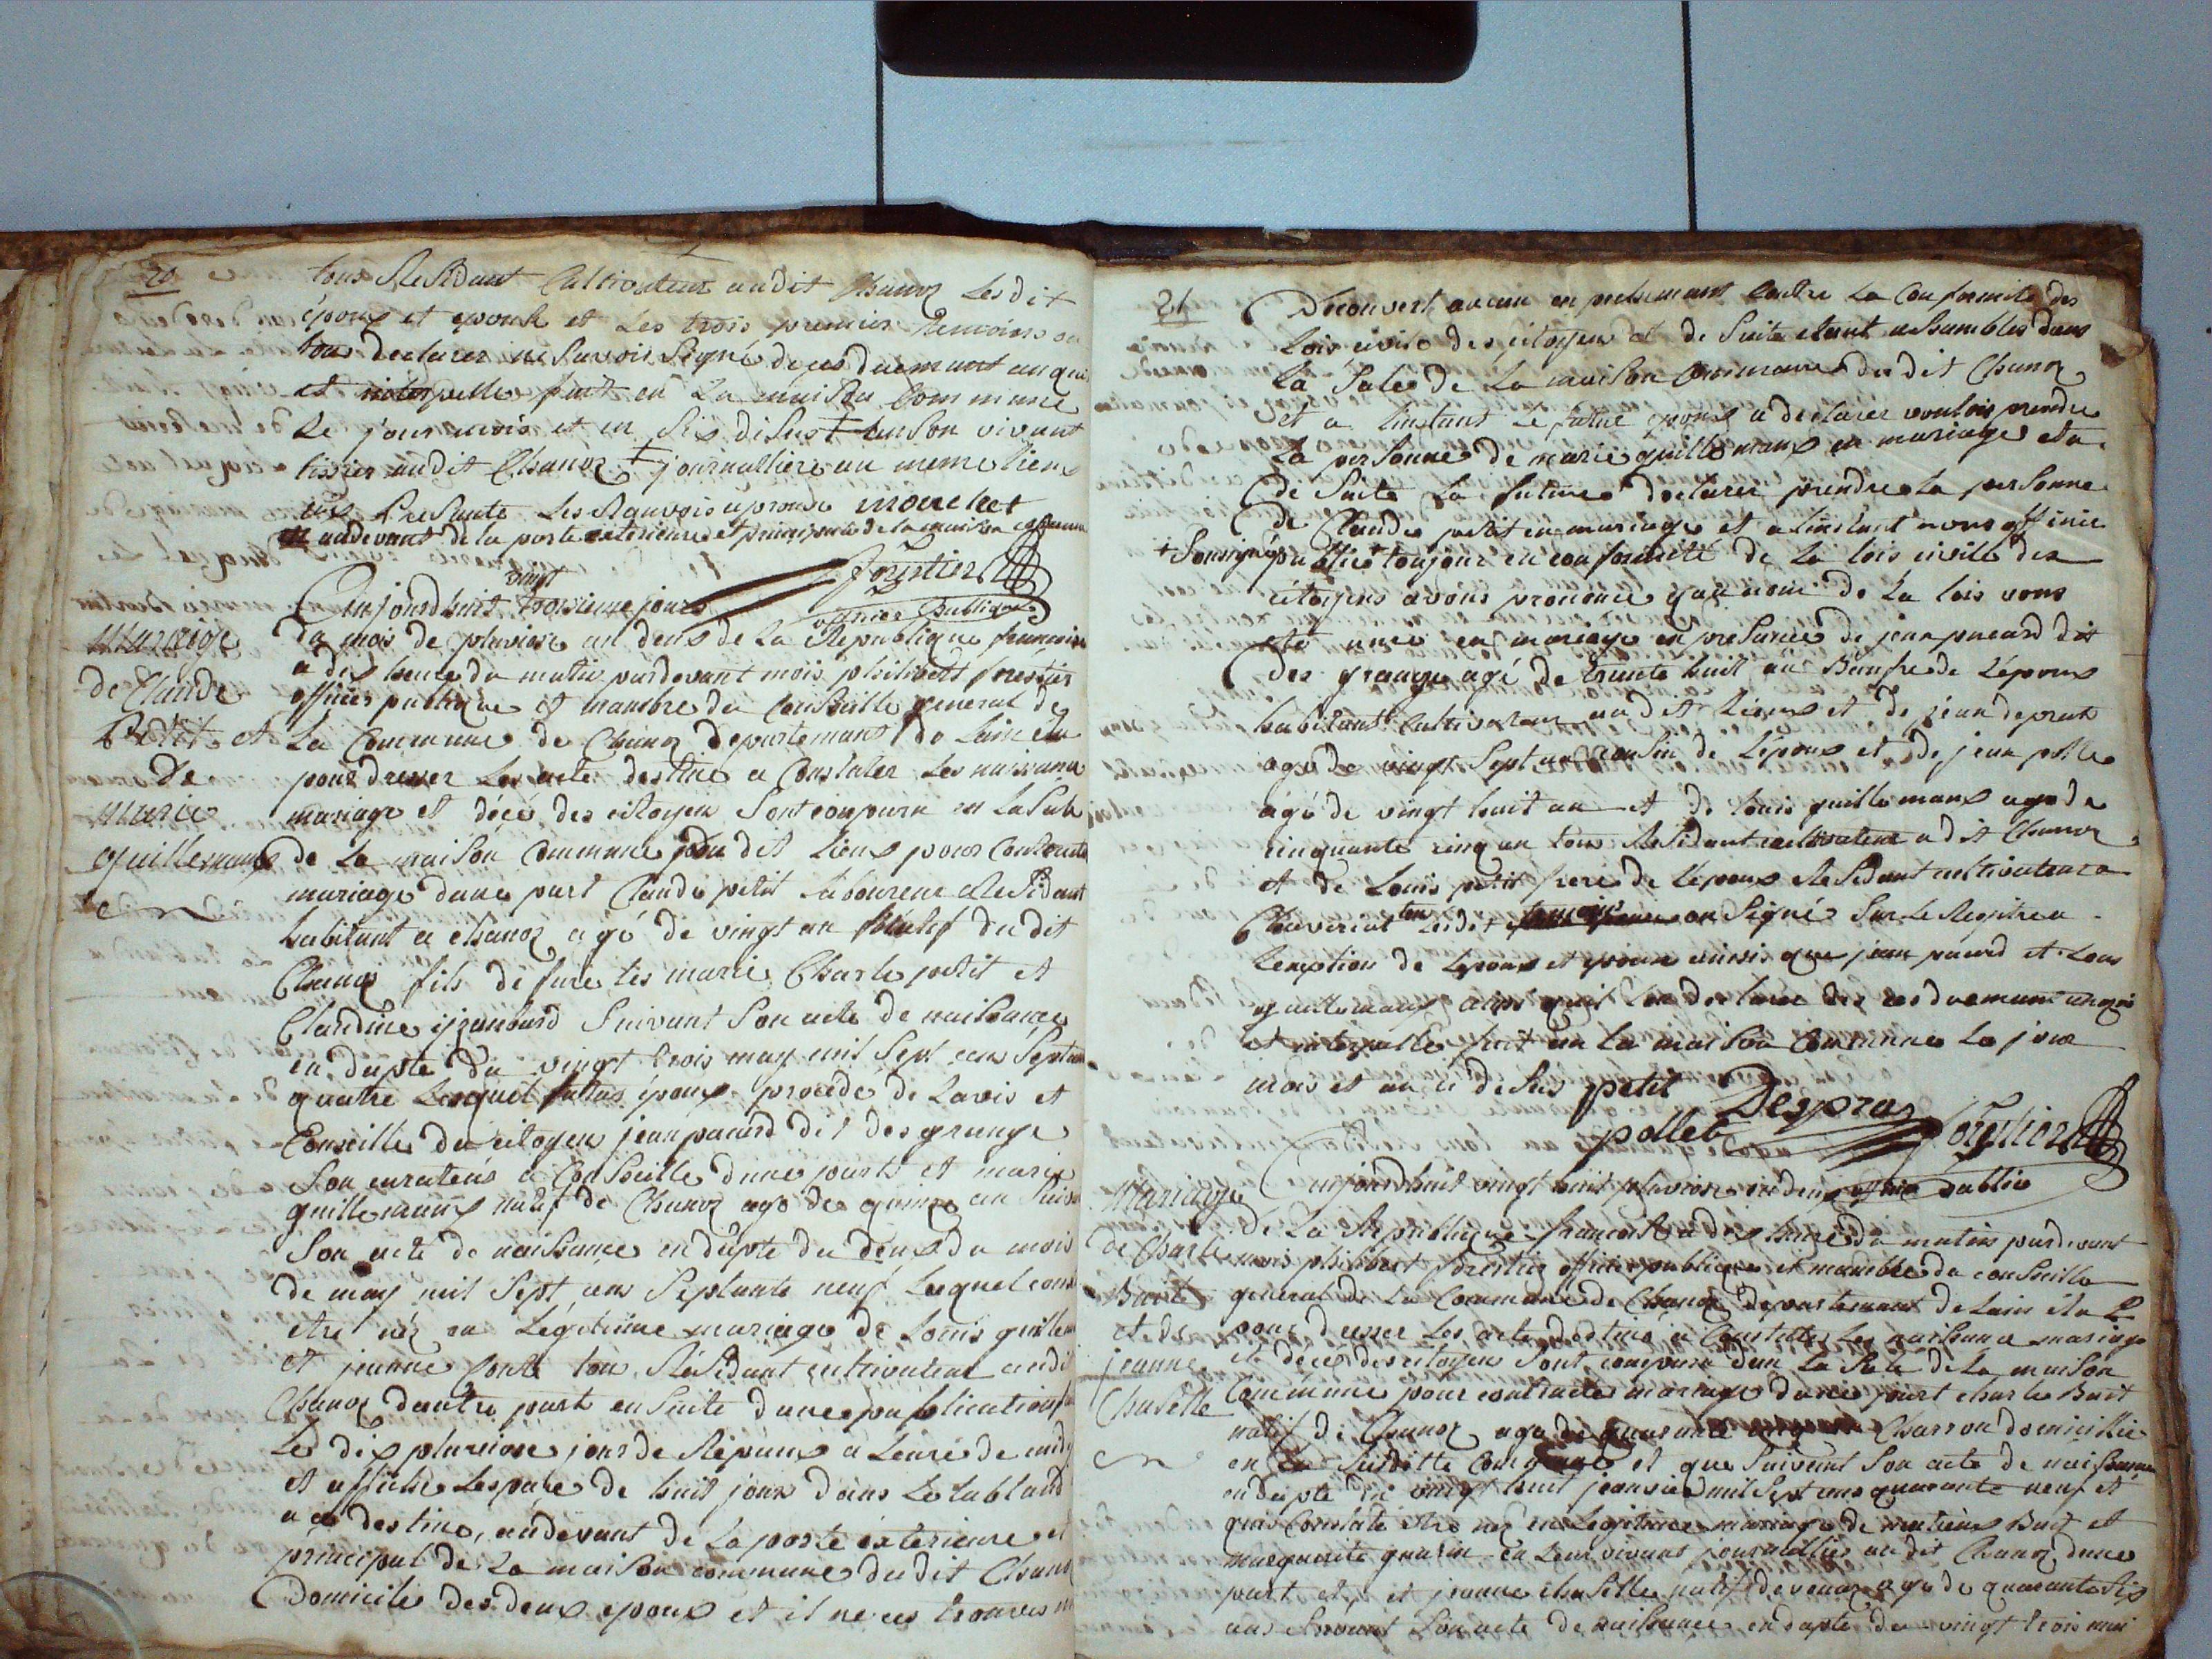 20
tous Residant Cultivateur audit Chanoz Lesdit
époux et epouse et Les trois premier temoins on
tous declarer ne Savoir Signé de ces duemant enqui
et interpelle fait en La maison Commune
Le jour mois et an Sis desus ‡ en Son vivant
tissier audit Chanoz ‡ journalliere au meme lieux
Les Renvois aprouve mouchet
au devant de la porte exterieure et principale de la maison commune
forestier
officier Publique
Mariage
de Claude
Petit et
de
Marie
Guillemaux
Aujourdhuit vingt troisieme jours
du mois de pluviose an deux de La Republique francoise
a dix heure du matin pardevant mois philibert forestier
officier publique et manbre du Conseille general de
La Commune de Chanoz departemant de Lain elu
pour dresser Les acte destine a Constater Les naissance
mariage et décé des citoyen Sont conparu en La Sale
de La maison Commune du dit Lieux pour Contracte
mariage dune part Claude petit Laboureur Residant
habitant a Chanoz agé de vingt an natif dudit
Chanoz fils de fure les marie Charle petit et
Claudine Suivant Son acte de naissance
en dapte du vingt trois may mil Sept cens Septante
quatre Lesquel futur époux procede de Lavis et
Conseille du citoyen jean pacard dit des grange
Son curateur a Conseille dune parts et marie
guillemaux natif de Chanoz agé de quinze an Suivant
Son acte de naissance en dapte du deux du mois
de may mil Sept cens Septante neuf Lequel cons
etre née en Légitime mariage de Louis guillem
et jeanne ponte tous Résidant cultivateur audi
Chanoz dautre part en Suite dune publication
Le dix pluviose jour de Répaux a Leure de midy
et affiche Lespace de huit jours dans Le tablaud
a ce destine, audevant de La porte exterieure et
principal de La maison commune dudit Chanoz
Domicile des deux epoux et il ne ces trouves
21
Decouvert aucun enpechemant Contre La Conformité des
Lois civile des citoyen et de Suite etant assambles dans
La Sale de La maison Commune du dit Chanoz
et a linstant Le futur epoux a declarer vouloir prendre
La personne de marie guillemaux en mariage et a
de Suite La future declarer prendre La personne
de Claude petit en mariage et a linstant nous officier
+ Soussigné
public + toujour en conformité de La lois civille des
citoyens avons prononcé quau nom de La lois vous
ete unie en mariage en presance de jean pacard dit
des grange agé de trante huit an Beaufre de Lépoux
habitant Cultivateur audit Lieux et de jean deprat
agé de vingt Sept an cousin de Lépoux et de jean polle
agé de vingt huit an et de Louis guillemaux age de
cinquante cinq an tous Residant cultivateur a dit Chanoz
et de Louis petit frere de Lépoux Residant cultivateur a
Chaveriat Lesdit temoins on Signé Sur Le Registre a
Lexeption de Lepoux et epouse ainsis que jean pacard et Louis
guillemaux ainsi quil Lon declarer de ces duemant enquis
et interpelle fait en La maison Commune Le jour
mois et an ci desus petit
Despra
pollet
forestier
officier Public
Mariage
de Charle
Buit
et de
jeanne
Chaselle
Aujourdhuit vingt huit pluviose an deux
de La Republique francoise a dix heure du matin pardevant
mois philibert forestier officier publique et manbre du conseille
general de La Commune de Chanoz departemant de Lain élu
pour dresser Les acte destine a Constatter Les naissance mariage
et deces des citoyen Sont comparu dan La Sale de La maison
Commune pour contracter mariage dune part charle Buit
natif de Chanoz age de quarante cinq an Charron domicillie
en La Susditte Commune et que Suivant Son acte de naissance
en dapte du vingt huit janvier mil Sept cens quarante neuf et
quis Constate etre nes en Legitime mariage de matieux Buit et
Marguerite en Leur vivant journallier audit Chanoz dune
part et, et jeanne chaselle natif de age de quarante Six
ans Suivant Son acte de naissance en dapte du vingt trois mai